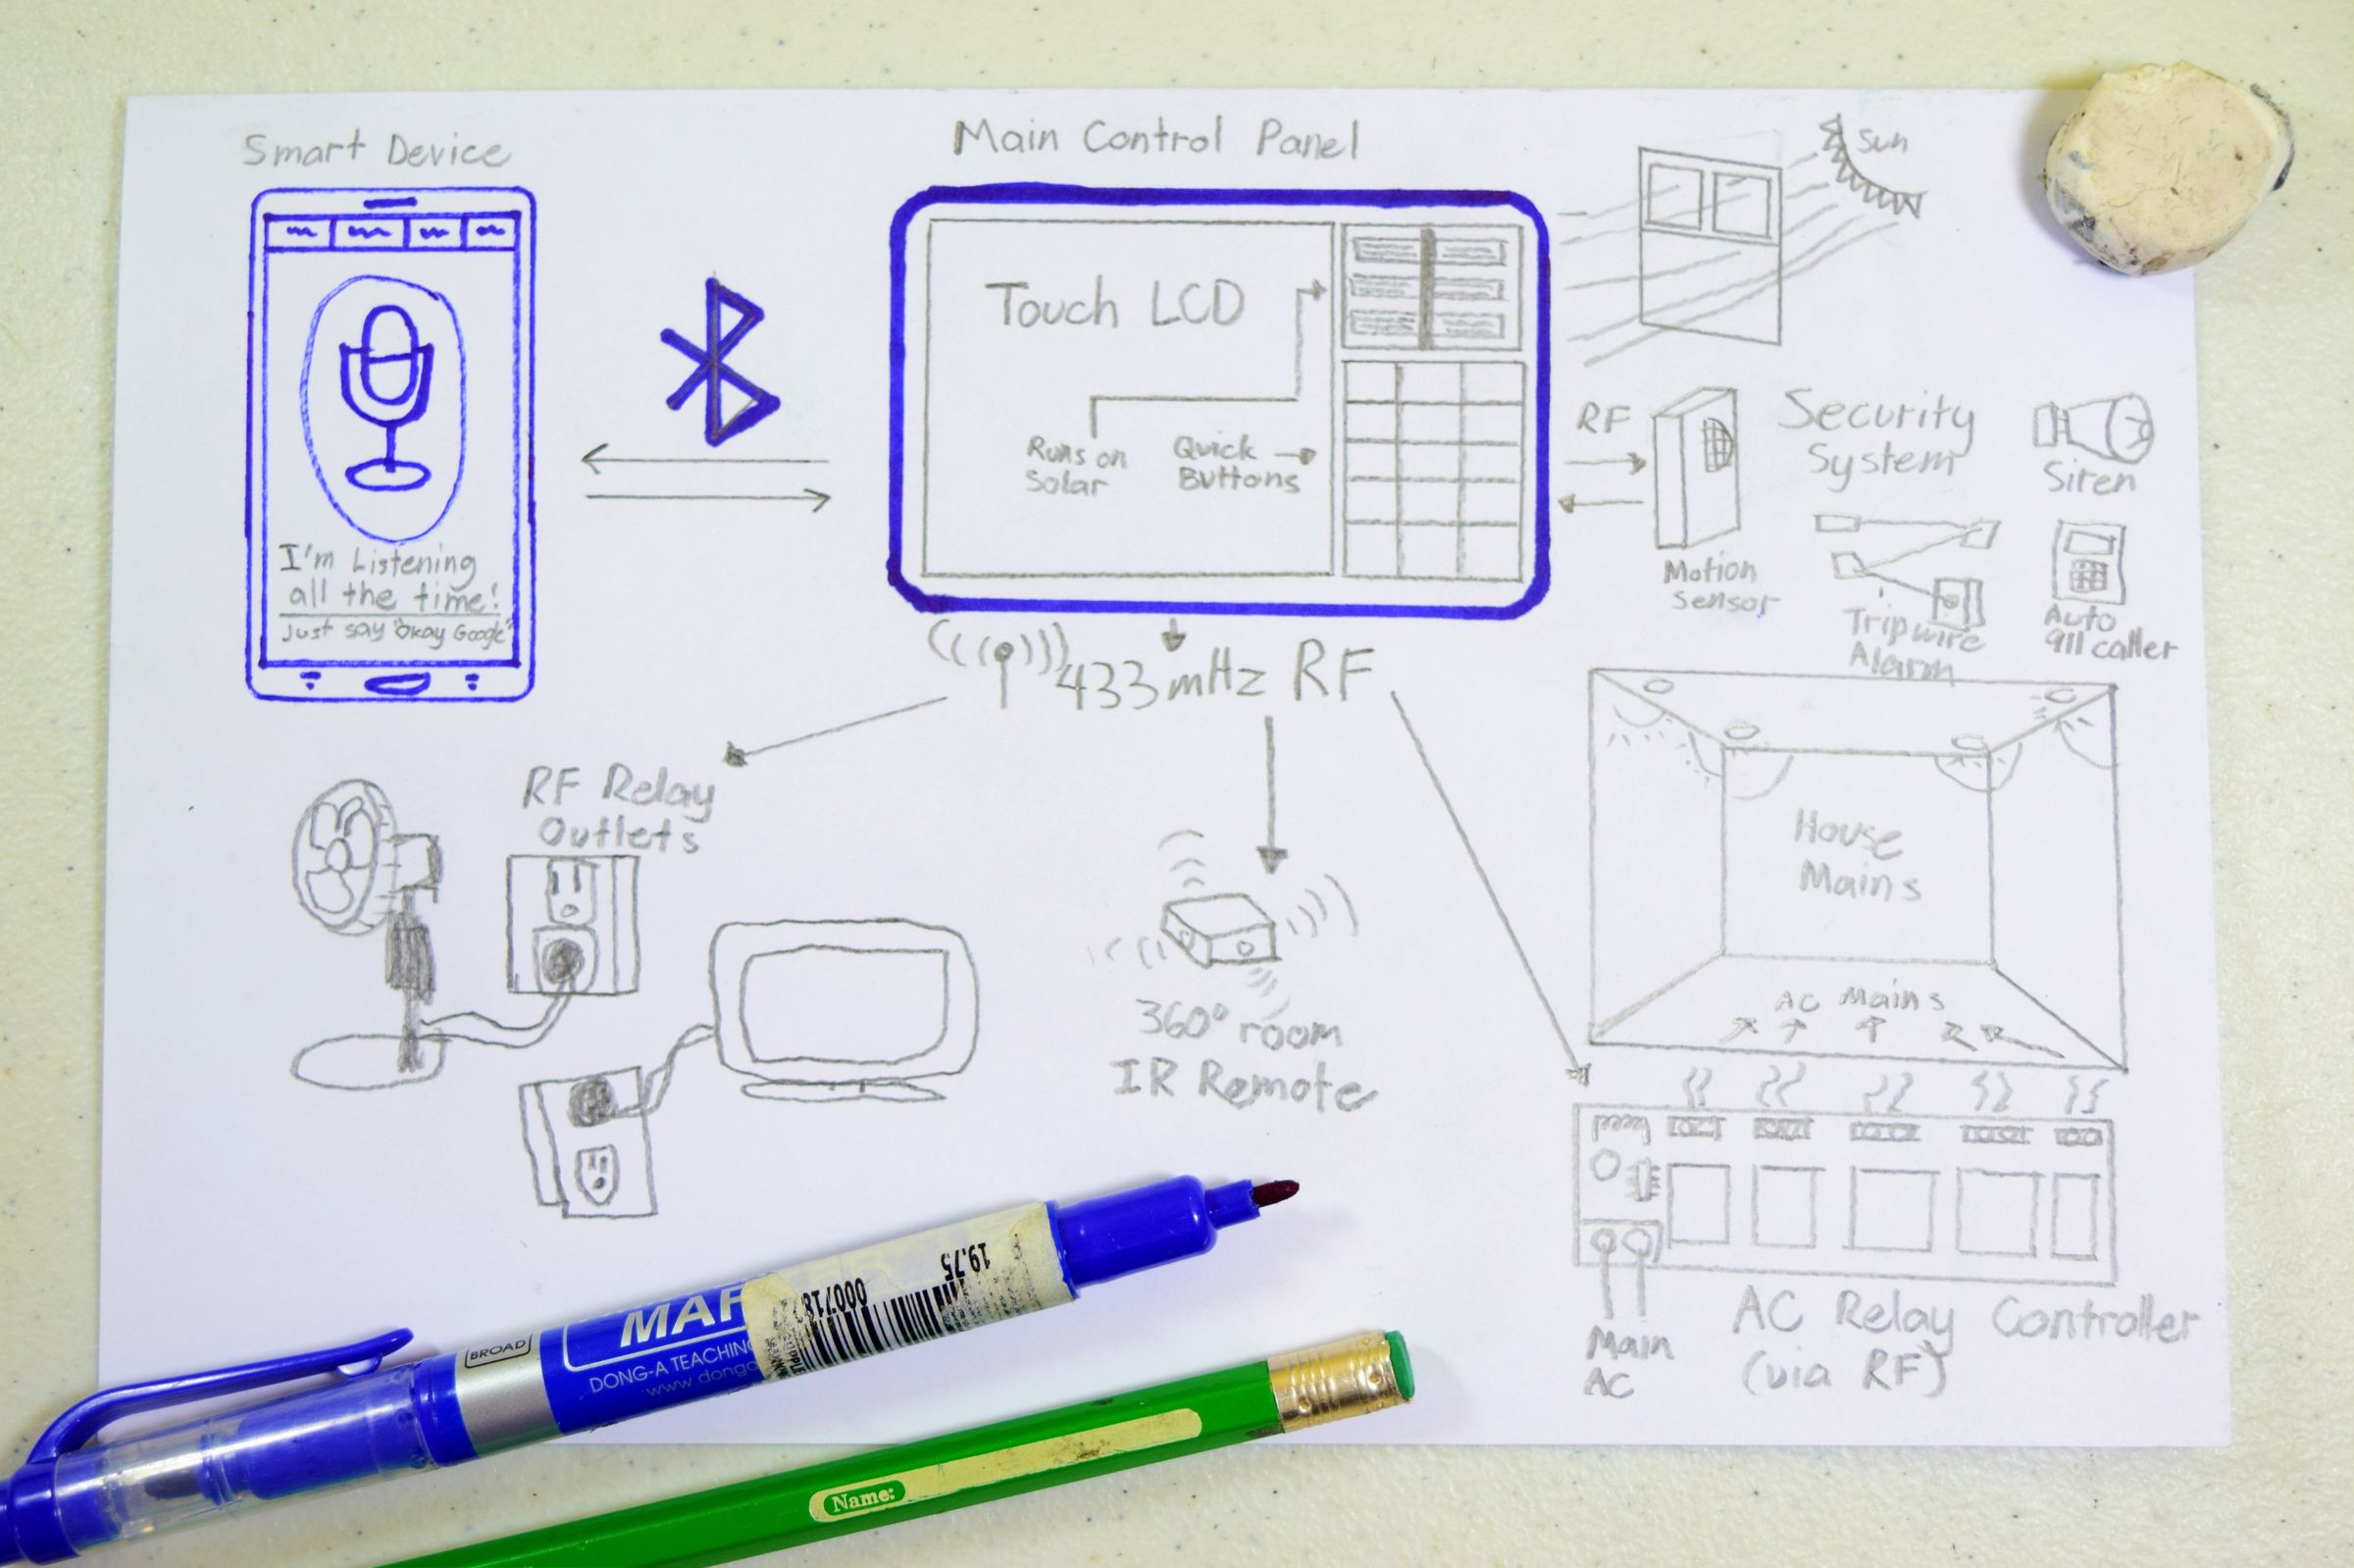 Smart Device
I'm Listening
all the time!
Just say "Okay Google"
Main Control Panel
Touch LCD
Runs on
Solar
Quick
Buttons
Sun
RF
Motion
Sensor
Security
System
Siren
Tripwire
Alarm
Auto
911 caller
433 mHz RF
RF Relay
Outlets
360° room
IR Remote
House
Mains
AC Mains
Main
AC
AC Relay Controller
(via RF)
BROAD
MAR
DONG-A TEACHING
www.donga
19.75
Name: